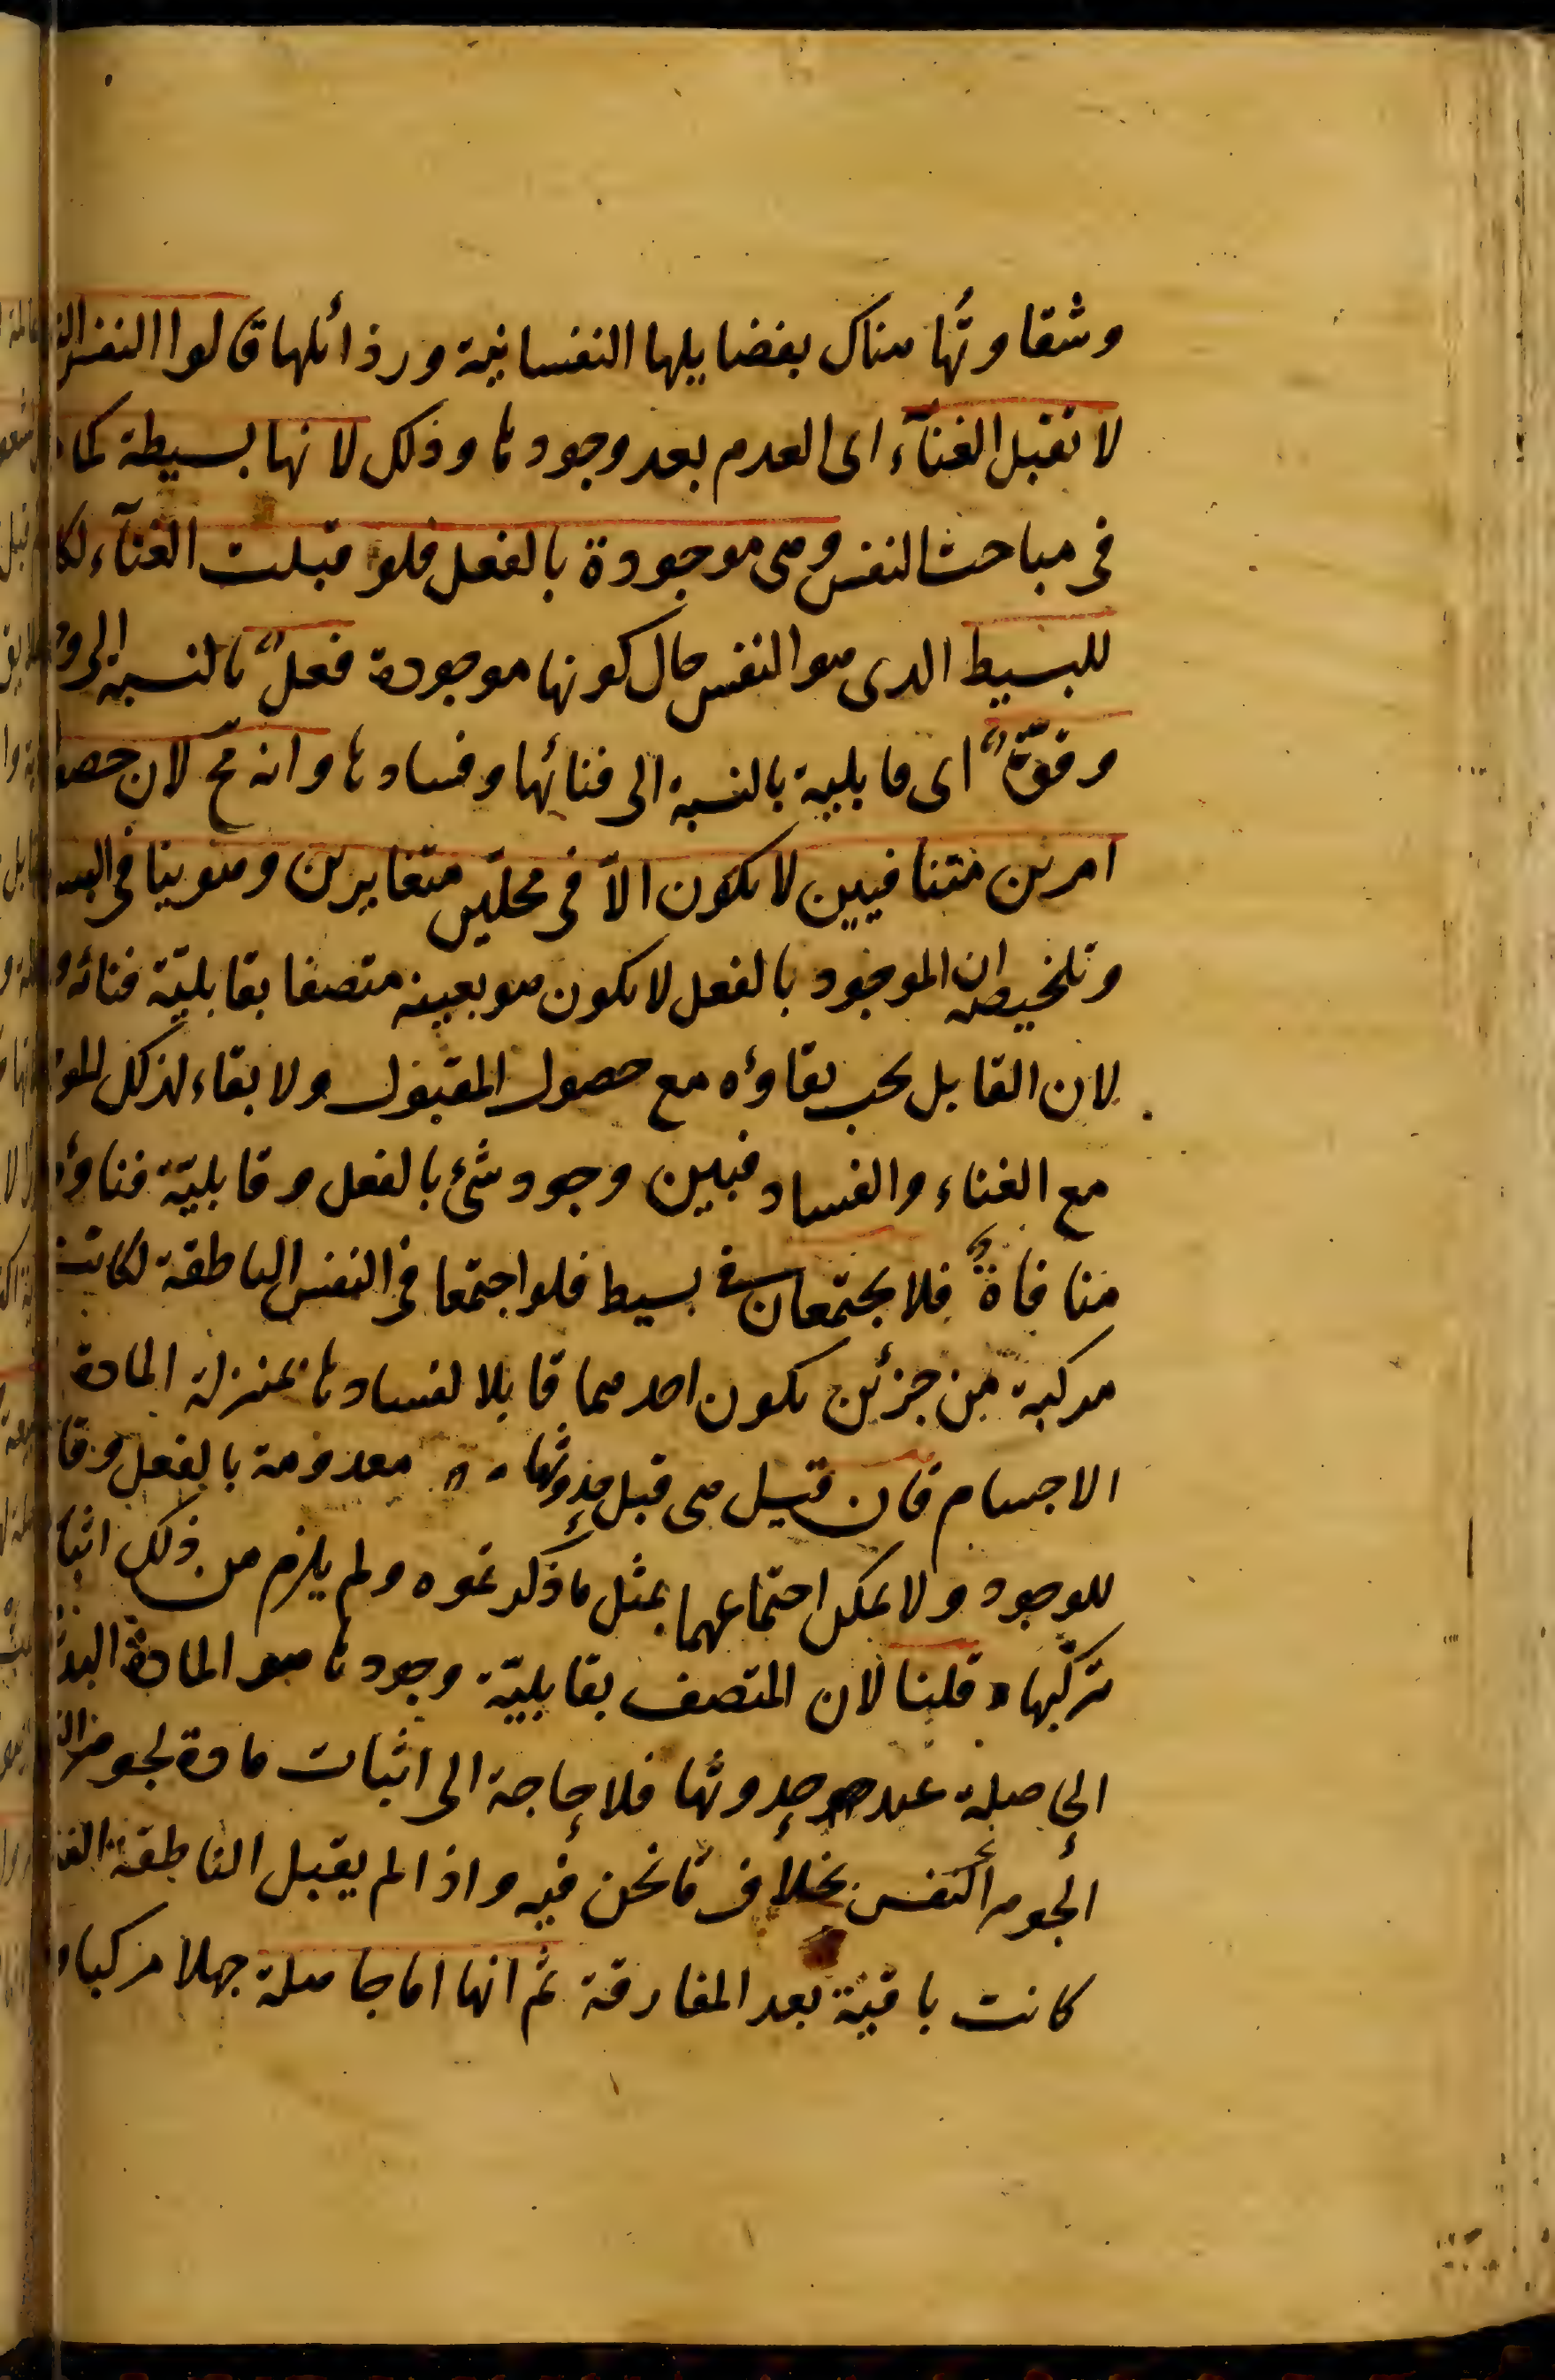 وشقاوتُها هناك بفضايلها النفسانية ورذائلها قالوا النفس
لا تقبل الفنآء اى العدم بعد وجودها وذلك لانها بسيطة كما
فى مباحث النفس وهى موجودة بالفعل فلو قبلت الفنآء لكا
للبسيط الذى هو النفس حال كونها موجودة فعلٌ بالنسبة الى و
وقوّةٌ اى قابلية بالنسبة الى فنائها وفسادها وانه مح لان حصو
امرين متنافيين لا يكون الاّ فى محلّين متغايرين وهو ينافى البسا
وتلخيصه ان الموجود بالفعل لا يكون هو بعينه متصفا بقابليّة فنائه و
لان القابل يجب بقاؤه مع حصول المقبول ولا بقاء لذلك المو
مع الفناء والفساد فبين وجود شئ بالفعل وقابليّة فناؤه
منافاةٌ فلا يجتمعان فى بسيط فلو اجتمعا فى النفس الناطقة لكانت
مركبة من جزئين يكون احدهما قابلا لفسادها بمنزلة المادة
الاجسام فان قيل هى قبل حدوثها معدومة بالفعل وقا
للوجود ولا يمكن اجتماعهما بمثل ما ذكرتموه ولم يلزم من ذلك اثبا
تركّبها قلنا لان المتصف بقابليّة وجودها هو المادة البد
الحاصلة عند حدوثها فلا حاجة الى اثبات مادة لجوهر
لجوهر النفس بخلاف ما نحن فيه واذا لم يقبل الناطقة الفنا
كانت باقية بعد المفارقة ثم انها اما جاهلة جهلا مركبا و